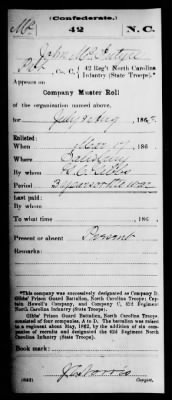 (Confederate.)
Mc 42 N.C.
John McIntyre
Pvt, Co. C, 42 Reg't North Carolina
Infantry (State Troops).*
Appears on
Company Muster Roll
of the organization named above,
for July & Aug, 186
Enlisted:
When Mar 17, 186
Where Salisbury
By whom
Period 3 years or the war
Last paid:
By whom
To what time , 186
Present or absent Present
Remarks:
*This company was successively designated as Company D,
Gibbs' Prison Guard Battalion, North Carolina Troops; Captain
Howell's Company, and Company C, 42d Regiment North
Carolina Infantry (State Troops).
Gibbs' Prison Guard Battalion, North Carolina Troops,
consisted of four companies, A to D. The battalion was raised
to a regiment about May, 1862, by the addition of six companies
of recruits and designated the 42d Regiment North
Carolina Infantry (State Troops).
Book mark:
(642)
Copyist.